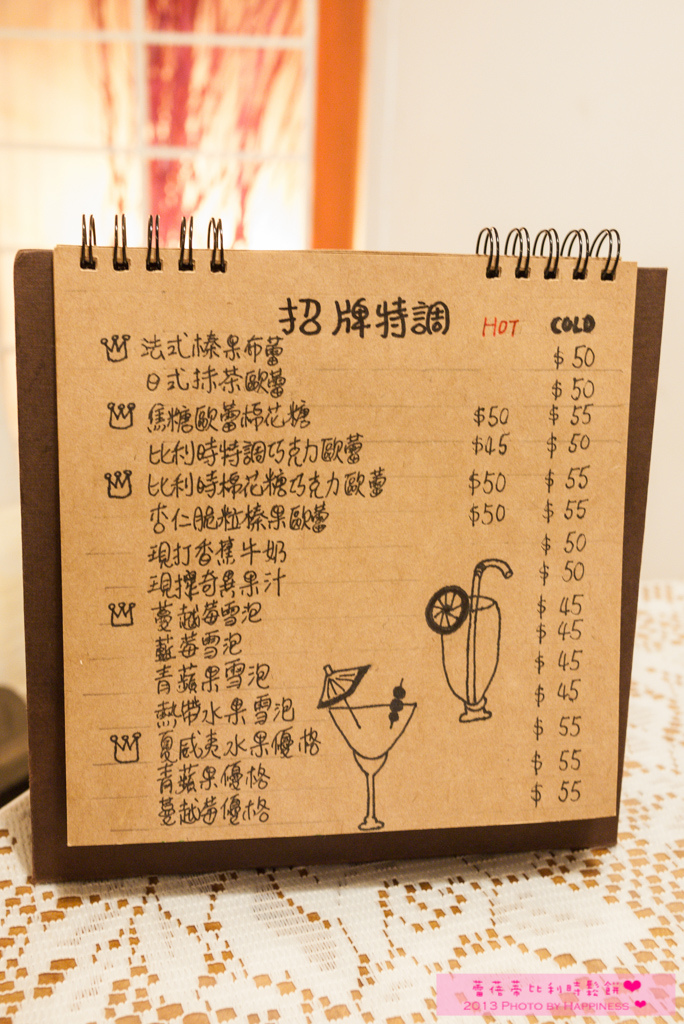 招牌特調 HOT COLD
法式榛果布蕾 $50
日式抹茶歐蕾 $50
焦糖歐蕾棉花糖 $50 $55
比利時特調巧克力歐蕾 $45 $50
比利時棉花糖巧克力歐蕾 $50 $55
杏仁脆粒榛果歐蕾 $50 $55
現打香蕉牛奶 $50
現搾奇異果汁 $50
蔓越莓雪泡 $45
藍莓雪泡 $45
青蘋果雪泡 $45
熱帶水果雪泡 $45
夏威夷水果優格 $55
青蘋果優格 $55
蔓越莓優格 $55
蕾蓓蒂比利時鬆餅
2013 PHOTO BY HAPPINESS